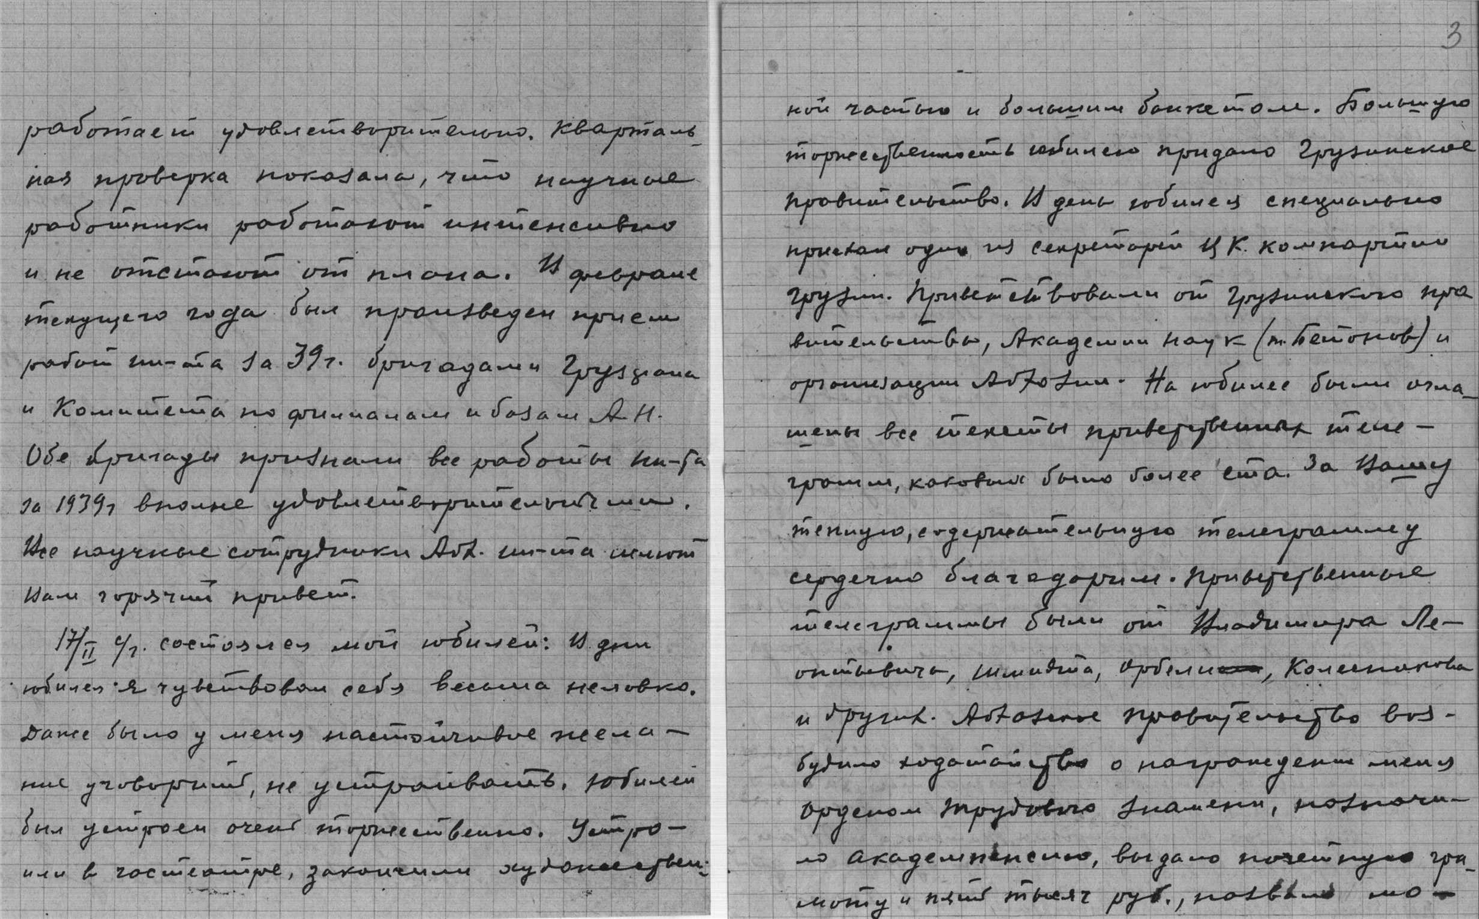 работает удовлетворительно. Кварталь-
ная проверка показала, что научные
работники работают интенсивно
и не отстают от плана. В феврале
текущего года был произведен прием
работ ин-та за 39 г. бригадами Грузфана
и Комитета по филиалам и базам А.Н.
Обе бригады признали все работы ин-та
за 1939 г вполне удовлетворительными.
Все научные сотрудники Абх. ин-та шлют
Вам горячий привет.
17/II с/г. состоялся мой юбилей: В дни
юбилея я чувствовал себя весьма неловко.
Даже было у меня настойчивое жела-
ние уговорить, не устраивать. Юбилей
был устроен очень торжественно. Устро-
или в гостеатре, закончили художествен-
3
ной частью и большим банкетом. Большую
торжественность юбилею придало Грузинское
правительство. В день юбилея специально
приехал один из секретарей ЦК. компартии
Грузии. Приветствовали от Грузинского пра
вительства, Академии наук (т. Бетонов) и
организации Абхазии. На юбилее были огла-
шены все тексты приветственных теле-
грамм, каковых было более ста. За Вашу
теплую, содержательную телеграмму
сердечно благодарим. Приветственные
телеграммы были от Владимира Ле-
онтьевича, Шмидта, Орбели, Колесникова
и других. Абхазское правительство воз-
будило ходатайство о награждении меня
орденом Трудового Знамени, назначи-
ло академпенсию, выдало почетную гра-
моту и пять тысяч руб., мо-